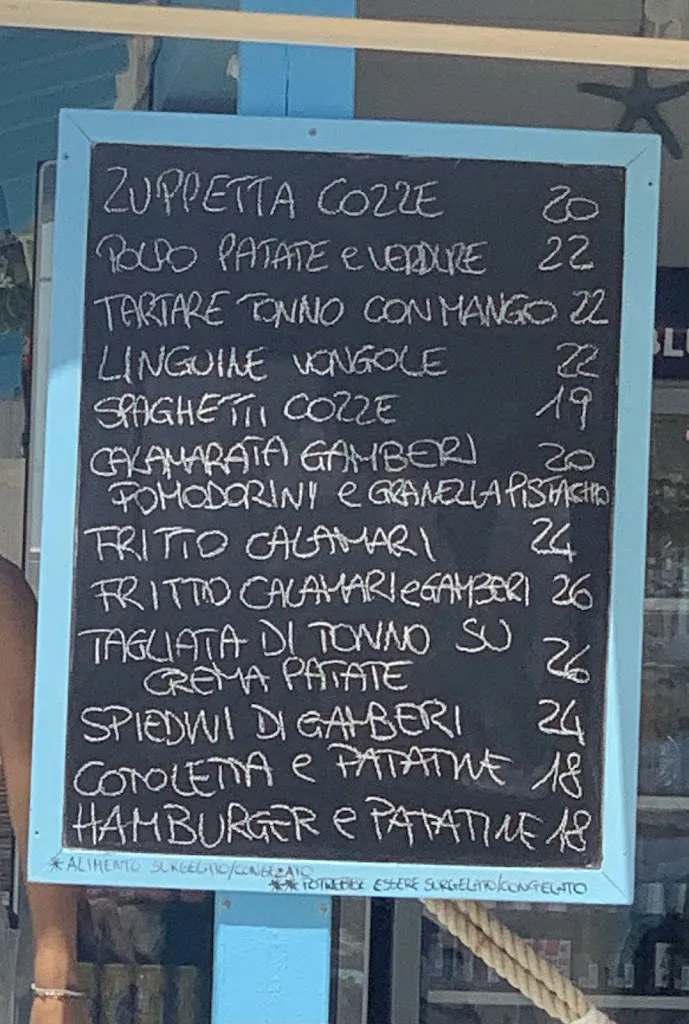 ZUPPETTA COZZE 20
POLPO PATATE e VERDURE 22
TARTARE TONNO CON MANGO 22
LINGUINE VONGOLE 22
SPAGHETTI COZZE 19
CALAMARATA GAMBERI 20
POMODORINI e GRANELLA PISTACHIO
FRITTO CALAMARI 24
FRITTO CALAMARI e GAMBERI 26
TAGLIATA DI TONNO SU
CREMA PATATE 26
SPIEDINI DI GAMBERI 24
COTOLETTA e PATATINE 18
HAMBURGER e PATATINE 18
* ALIMENTO SURGELATO/CONGELATO
** POTREBBE ESSERE SURGELATO/CONGELATO